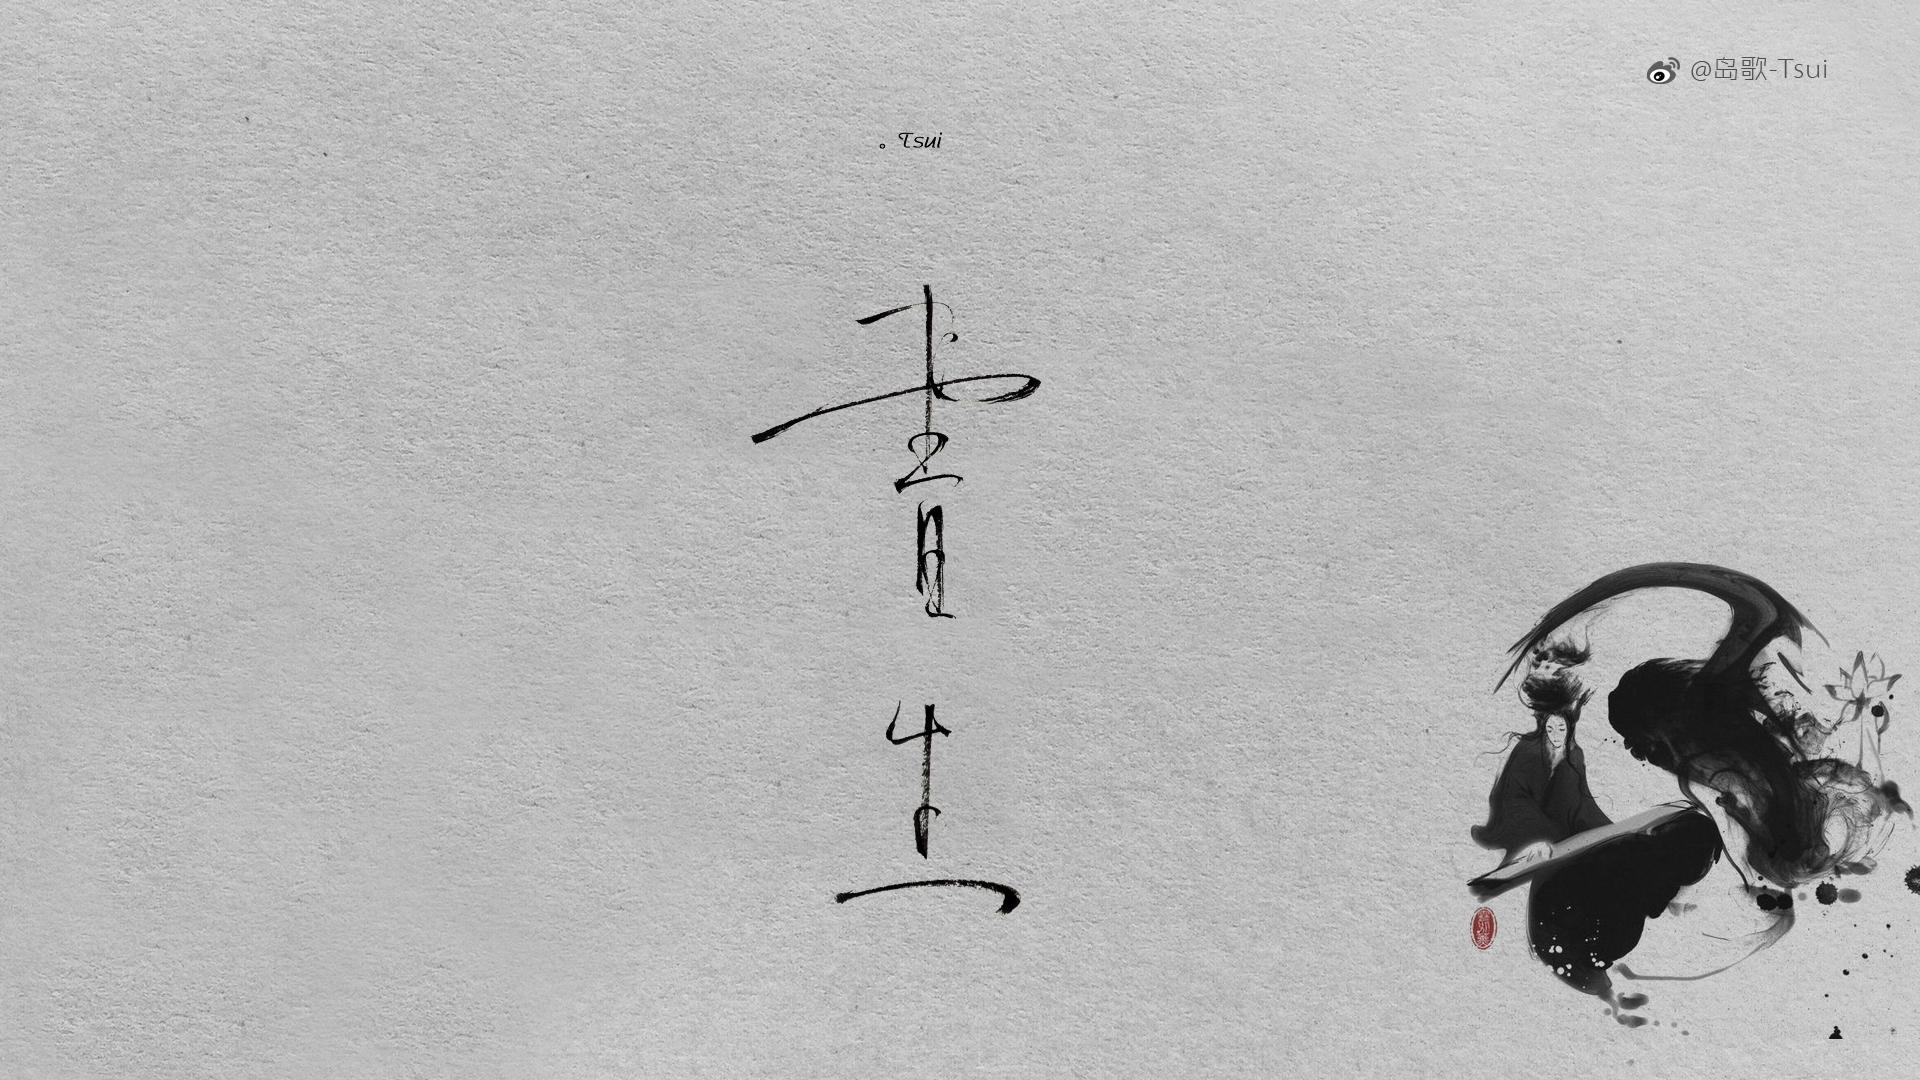 @岛歌-Tsui
。Tsui
書生